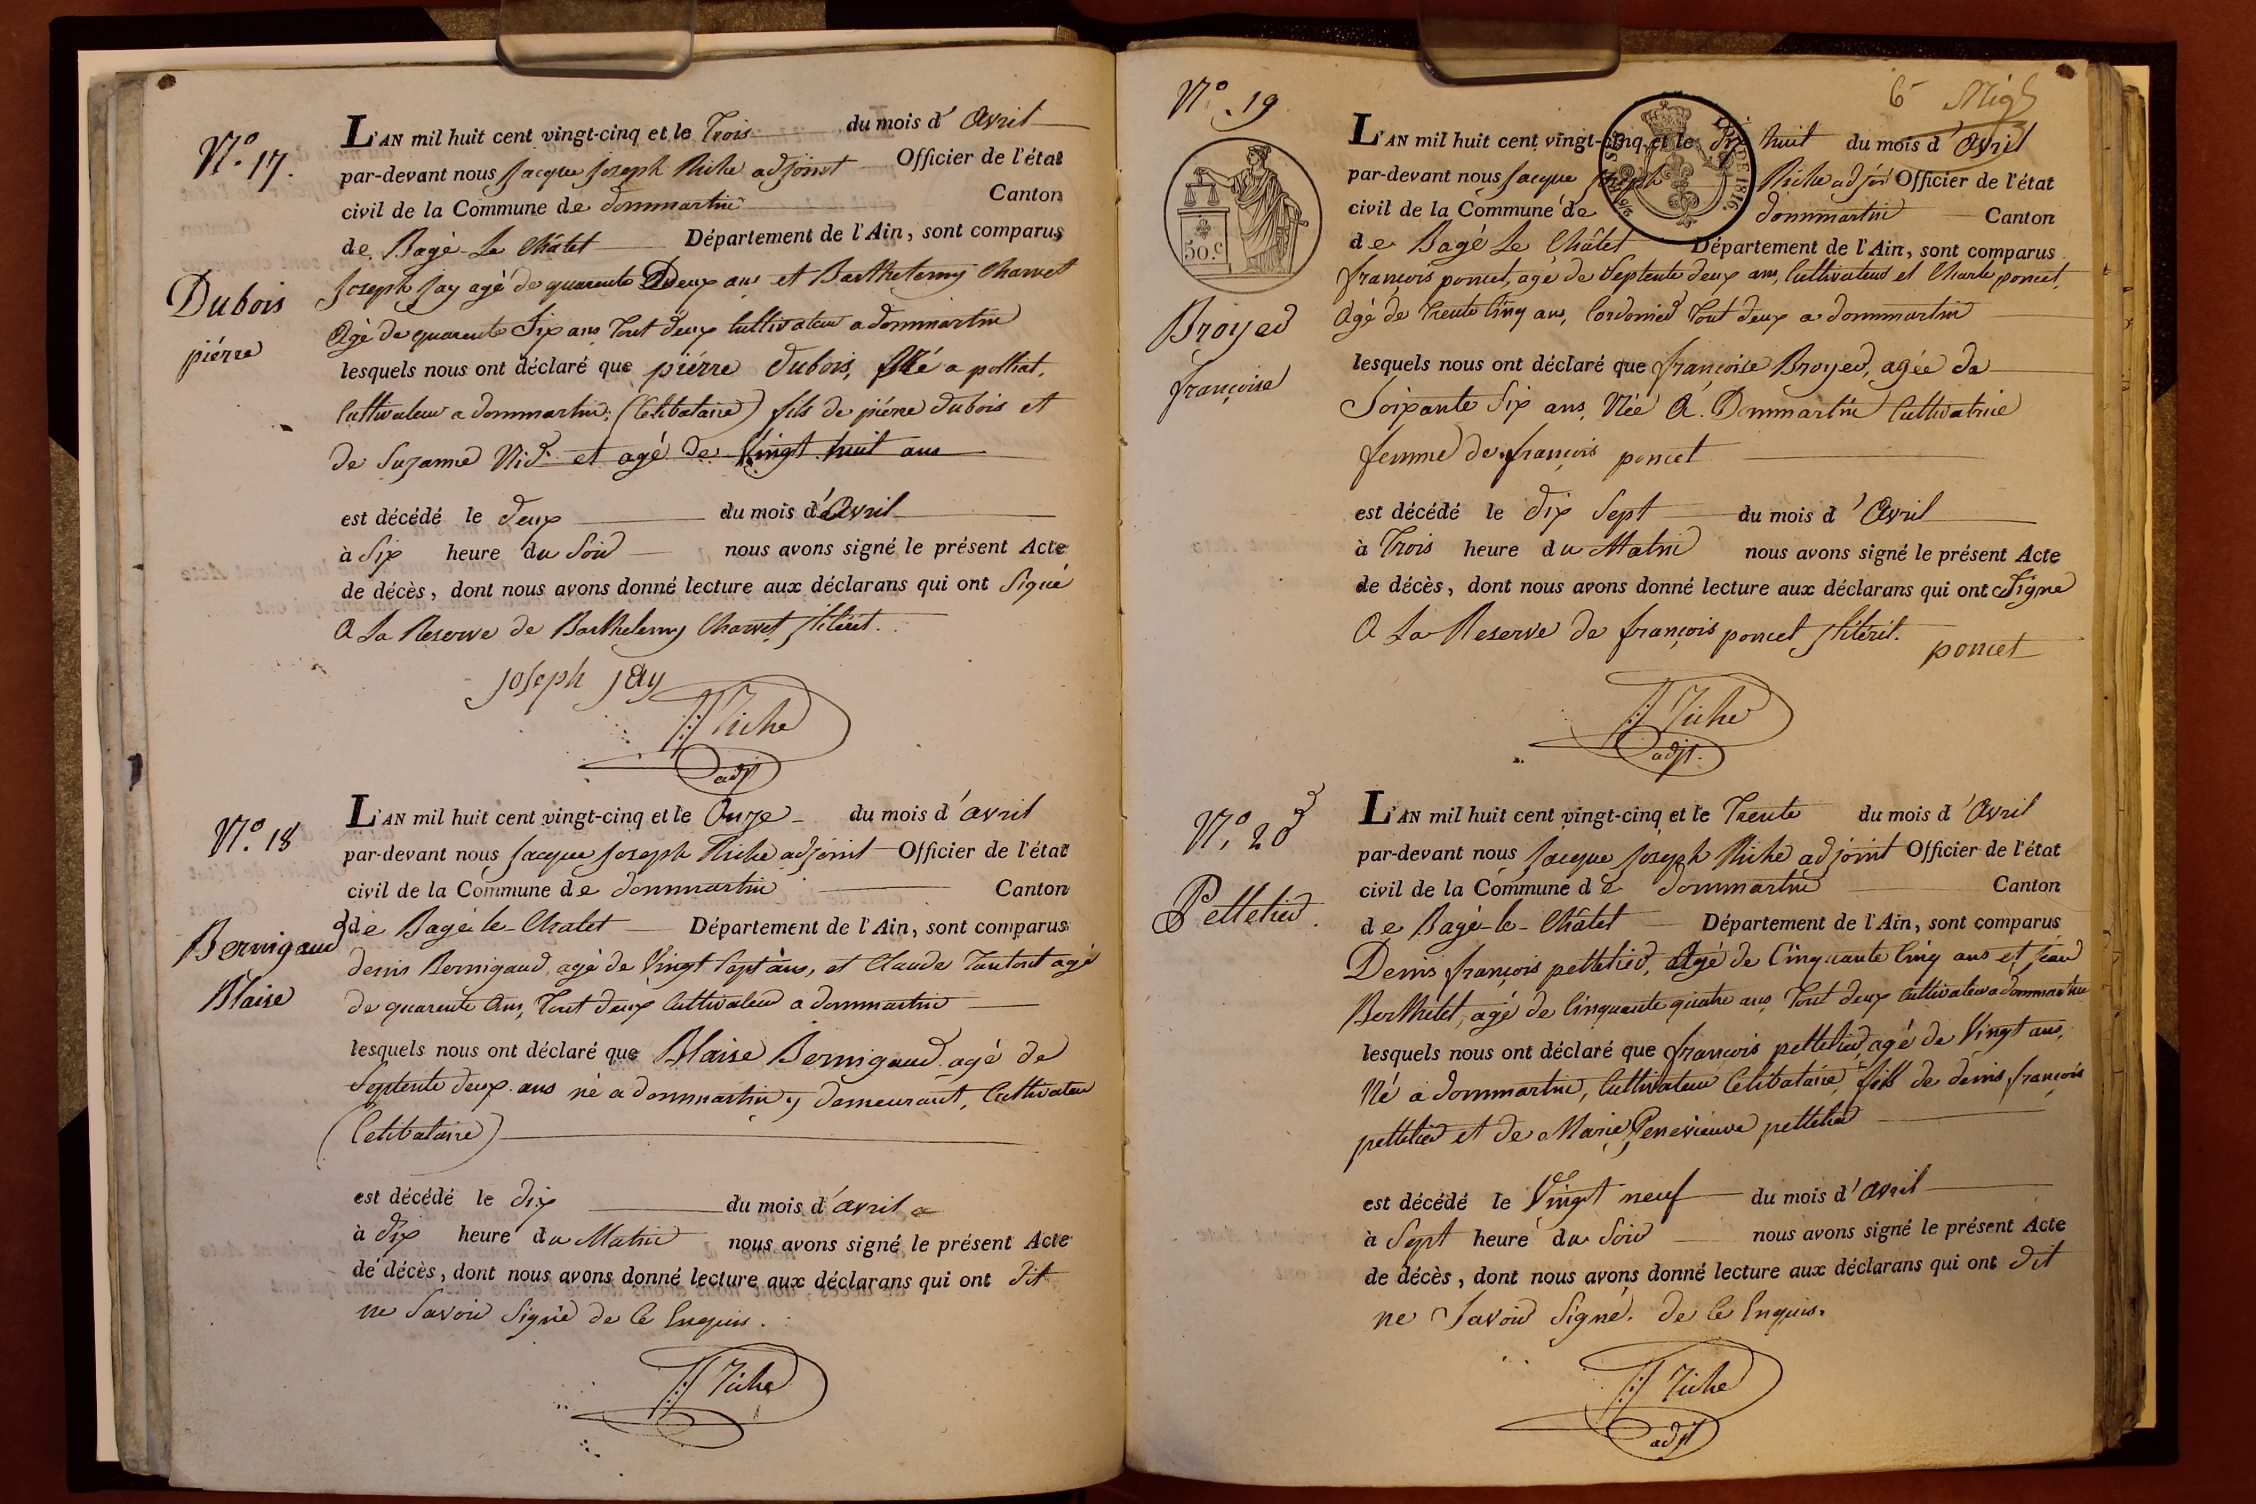 N.° 17.
L'AN mil huit cent vingt-cinq et le Trois du mois d' Avril
par-devant nous Jacque Joseph Riche adjoint Officier de l'état
civil de la Commune de dommartin Canton
de Bagé Le Châtel Département de l'Ain, sont comparus
Joseph Jay agé de quarente Deux ans et Barthelemy Charvet
Agé de quarente Six ans Tout deux Cultivateur a dommartin
Dubois
piérre
lesquels nous ont déclaré que piérre dubois, Né a polliat,
Cultivateur a dommartin; (Célibataire) fils de piérre dubois et
de Suzanne et agé de Vingt huit ans
est décédé le deux du mois d'Avril
à Six heure du Soir nous avons signé le présent Acte
de décès, dont nous avons donné lecture aux déclarans qui ont Signé
A La Reserve de Barthelemy Charvet Jlitérét.
Joseph Jay
Riche
adjt
N.° 18
L'AN mil huit cent vingt-cinq et le Onze du mois d'avril
par-devant nous Jacque Joseph Riche adjoint Officier de l'état
civil de la Commune de dommartin Canton
de Bagé le-Chatel Département de l'Ain, sont comparus
Bernigaud
Blaise
denis Bernigaud, agé de Vingt Sept ans, et Claude agé
de quarente Ans, Tout deux Cultivateur a dommartin
lesquels nous ont déclaré que Blaise Bernigaud agé de
Septente deux ans né a dommartin y demeurant, Cultivateur
(Celibataire)
est décédé le dix du mois d'avril a
à dix heure du Matin nous avons signé le présent Acte
de décès, dont nous avons donné lecture aux déclarans qui ont dit
ne Savoir Signé de Ce Enquis.
Riche
N.° 19
6 
50.c
DE 1816
L'AN mil huit cent vingt-cinq et le Dix huit du mois d'Avril
par-devant nous Jacque Joseph Riche adjoi Officier de l'état
civil de la Commune de dommartin Canton
de Bagé Le Châtel Département de l'Ain, sont comparus
francois poncet, agé de Septente deux ans, Cultivateur et Charle poncet,
Agé de Trente Cinq ans, Cordonier Tout deux a dommartin
Broyer
françoise
lesquels nous ont déclaré que françoise Broyer, agée de
Soixante Six ans, Née A Dommartin Cultivatrice
femme de françois poncet
est décédé le dix Sept du mois d' Avril
à Trois heure du Matin nous avons signé le présent Acte
de décès, dont nous avons donné lecture aux déclarans qui ont Signe
A La Reserve de françois poncet Jlitérét.
poncet
Riche
adjt.
N.° 20
L'AN mil huit cent vingt-cinq et le Trente du mois d'Avril
par-devant nous Jacque Joseph Riche adjoint Officier de l'état
civil de la Commune de dommartin Canton
de Bagé-le-Châtel Département de l'Ain, sont comparus
Pelletier
Denis françois pelletier, Agé de Cinquante Cinq ans et Jean
Berthelet, agé de Cinquante quatre ans, Tout deux Cultivateur a dommartin
lesquels nous ont déclaré que francois pelletier, agé de Vingt ans,
Né a dommartin, Cultivateur Célibataire, fils de denis françois
pelletier et de Marie Genevieuve pelletier
est décédé le Vingt neuf du mois d'Avril
à Sept heure du Soir nous avons signé le présent Acte
de décès, dont nous avons donné lecture aux déclarans qui ont dit
ne Savoir Signé. de Ce Enquis.
Riche
adjt